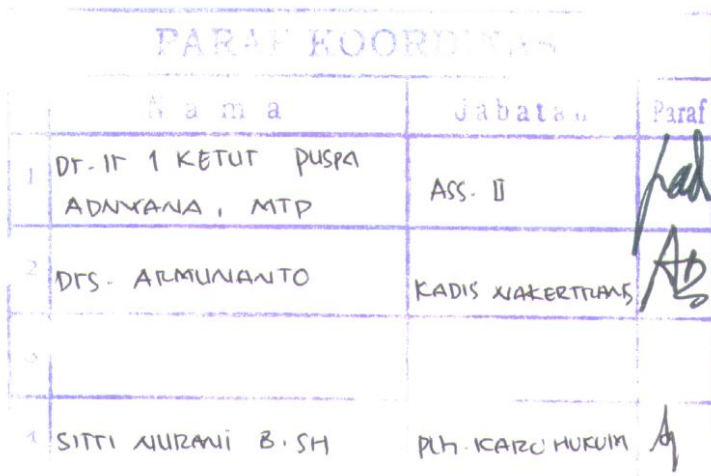 PARAF KOORDINASI
Nama Jabatan Paraf
1 Dr. Ir I KETUT PUSPA
ADNYANA, MTP ASS. II
2 Drs. ARMUNANTO KADIS NAKERTRANS
3
4 SITTI NURANI B. SH Plh. KARO HUKUM